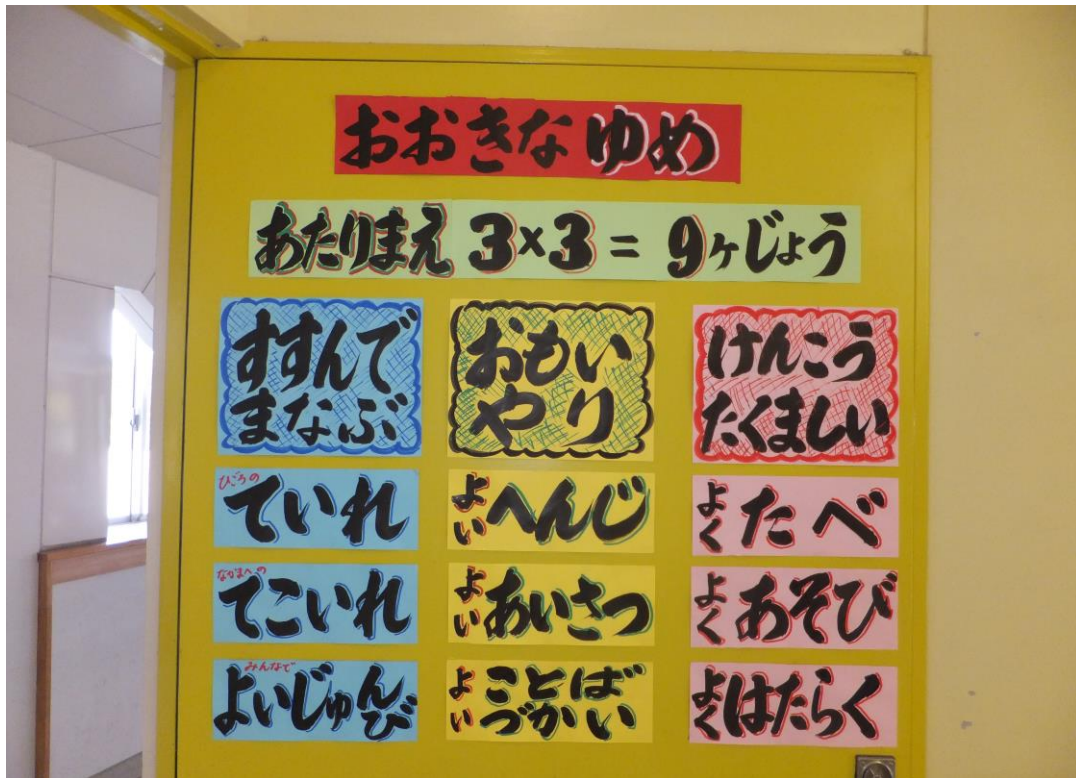 おおきなゆめ
あたりまえ 3×3= 9ヶじょう
すすんで
まなぶ
ひごろの
ていれ
なかまへの
てこいれ
みんなで
よいじゅんび
おもい
やり
よいへんじ
よいあいさつ
よいことばづかい
けんこう
たくましい
よくたべ
よくあそび
よくはたらく